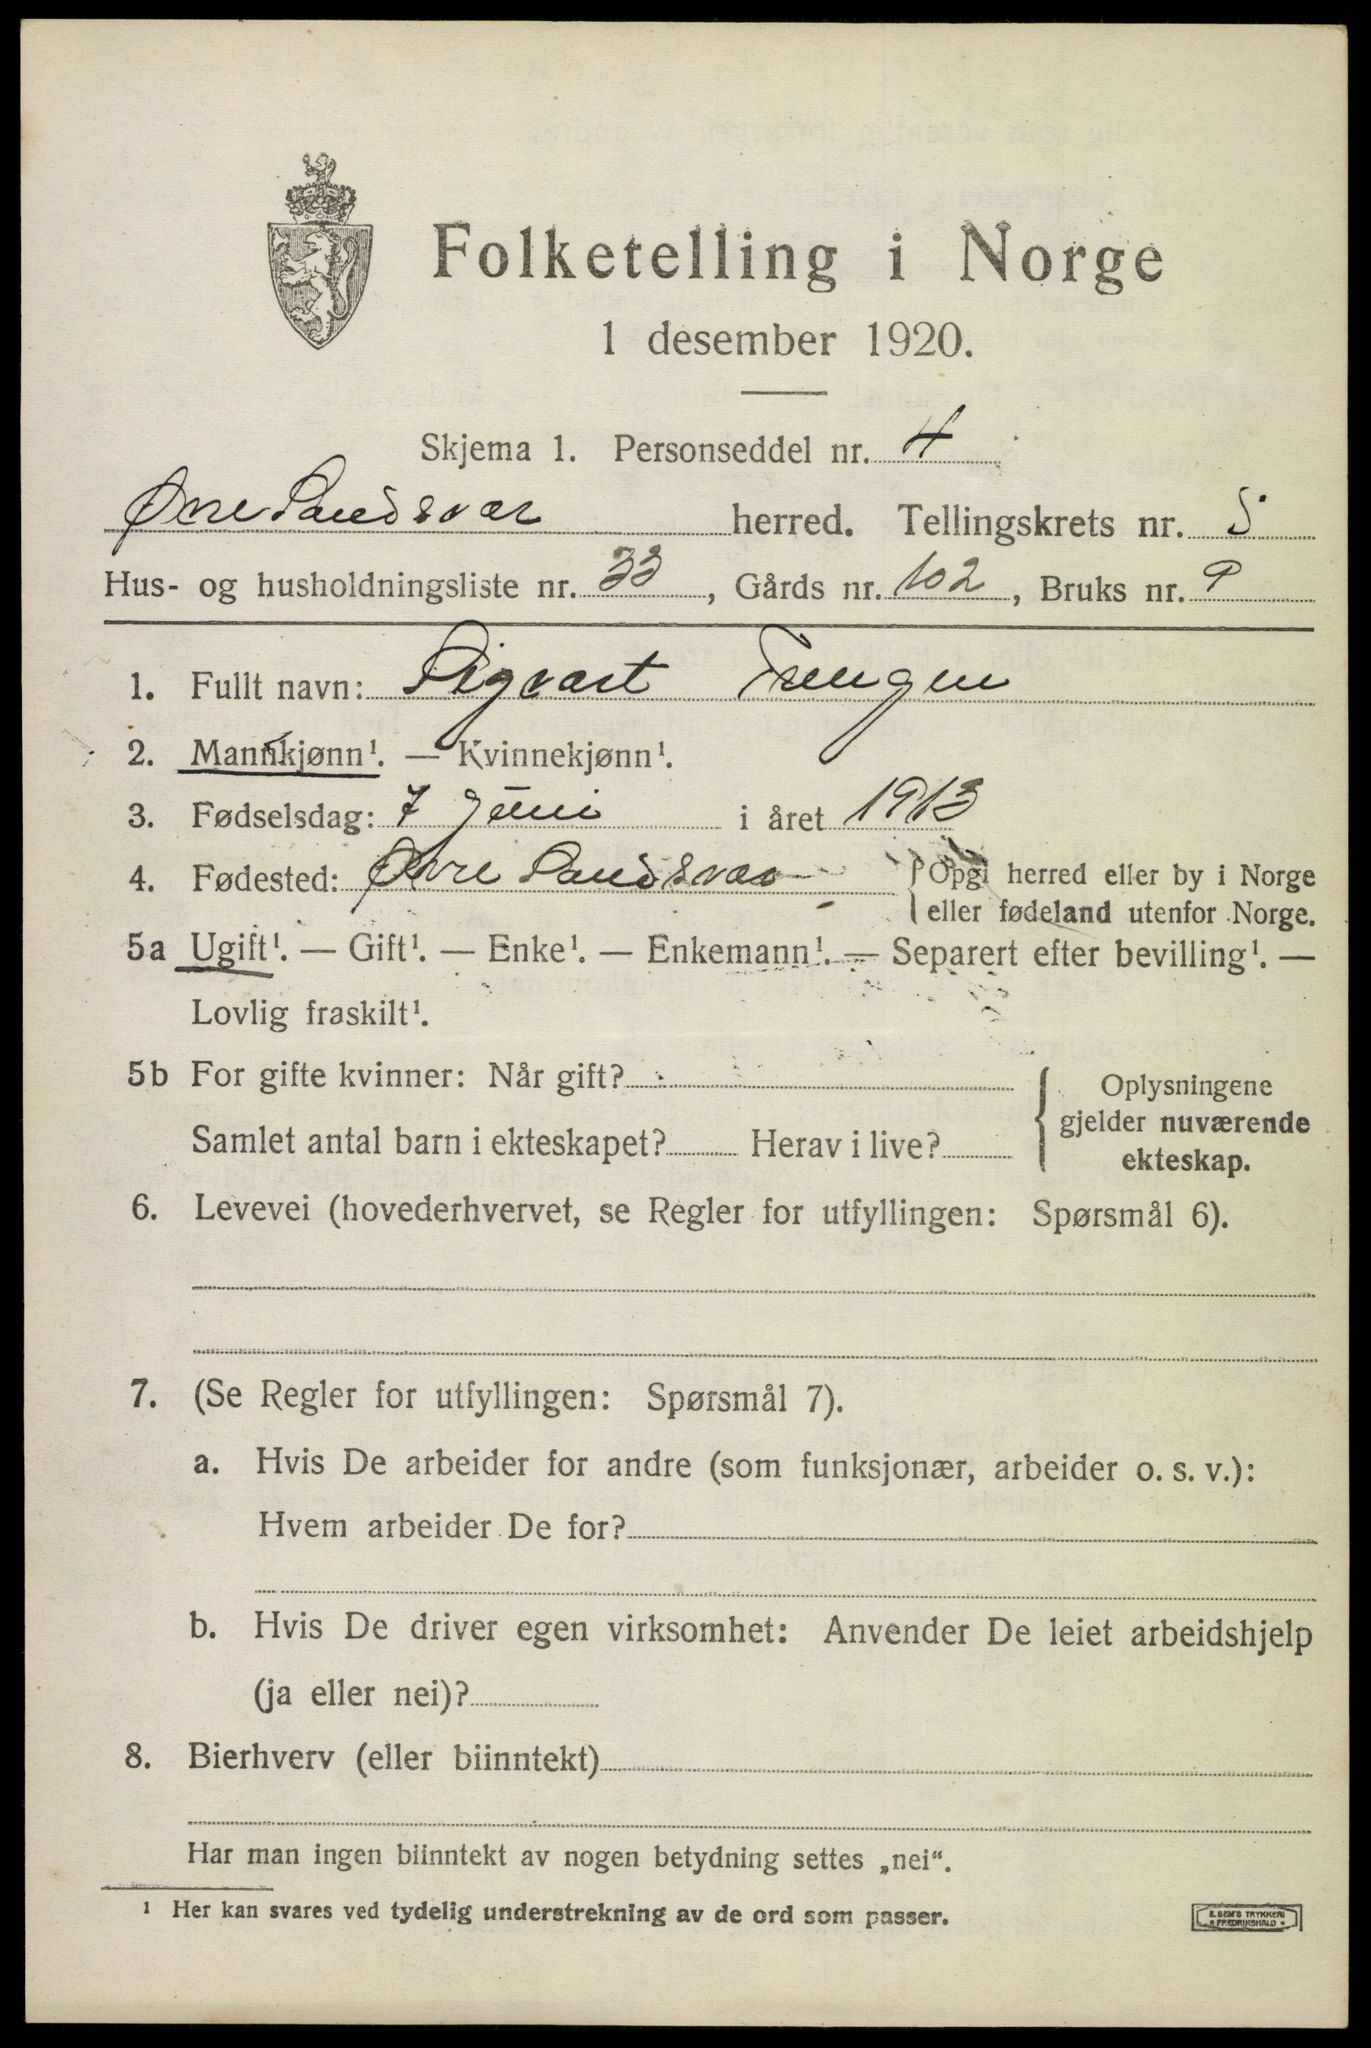 Folketelling i Norge
1 desember 1920.
Skjema 1. Personseddel nr. 4
Øvre Sandsvær herred. Tellingskrets nr. 5
Hus- og husholdningsliste nr. 33, Gårds nr. 102, Bruks nr. 9
1. Fullt navn: Sigvart Trengen
2. Mannkjønn¹. — Kvinnekjønn¹.
3. Fødselsdag: 7 juni i året 1913
4. Fødested: Øvre Sandsvær { Opgi herred eller by i Norge
eller fødeland utenfor Norge.
5a Ugift¹. — Gift¹. — Enke¹. — Enkemann¹. — Separert efter bevilling¹. —
Lovlig fraskilt¹.
5b For gifte kvinner: Når gift?
Samlet antal barn i ekteskapet? Herav i live?
{ Oplysningene
gjelder nuværende
ekteskap.
6. Levevei (hovederhvervet, se Regler for utfyllingen: Spørsmål 6).
7. (Se Regler for utfyllingen: Spørsmål 7).
a. Hvis De arbeider for andre (som funksjonær, arbeider o. s. v.):
Hvem arbeider De for?
b. Hvis De driver egen virksomhet: Anvender De leiet arbeidshjelp
(ja eller nei)?
8. Bierhverv (eller biinntekt)
Har man ingen biinntekt av nogen betydning settes „nei“.
¹ Her kan svares ved tydelig understrekning av de ord som passer.
E. SEM'S TRYKKERI
• FREDRIKSHALD •